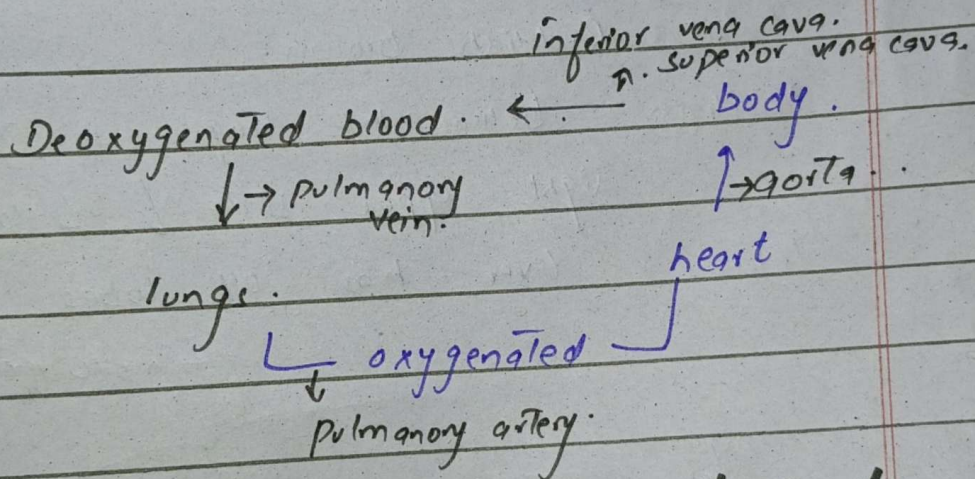 inferior vena cava.
n. superior vena cava.
Deoxygenated blood. ← body.
↓→ pulmanory
vein.
↑→aorta.
heart
lungs.
oxygenated
↓
pulmanory artery.